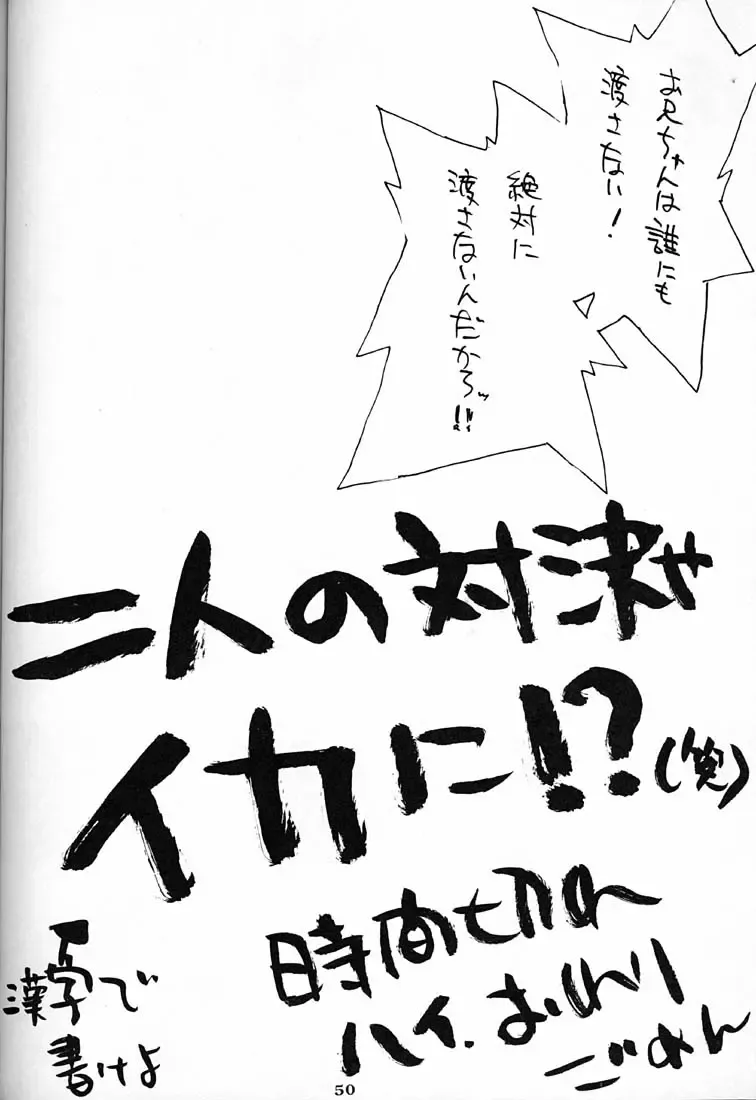 お兄ちゃんは誰にも
渡さない!
絶対に
渡さないんだからッ!!
二人の対決や
イカに!?(笑)
時間切れ
ハイ.おわり
ごめん
漢字で
書けよ
50